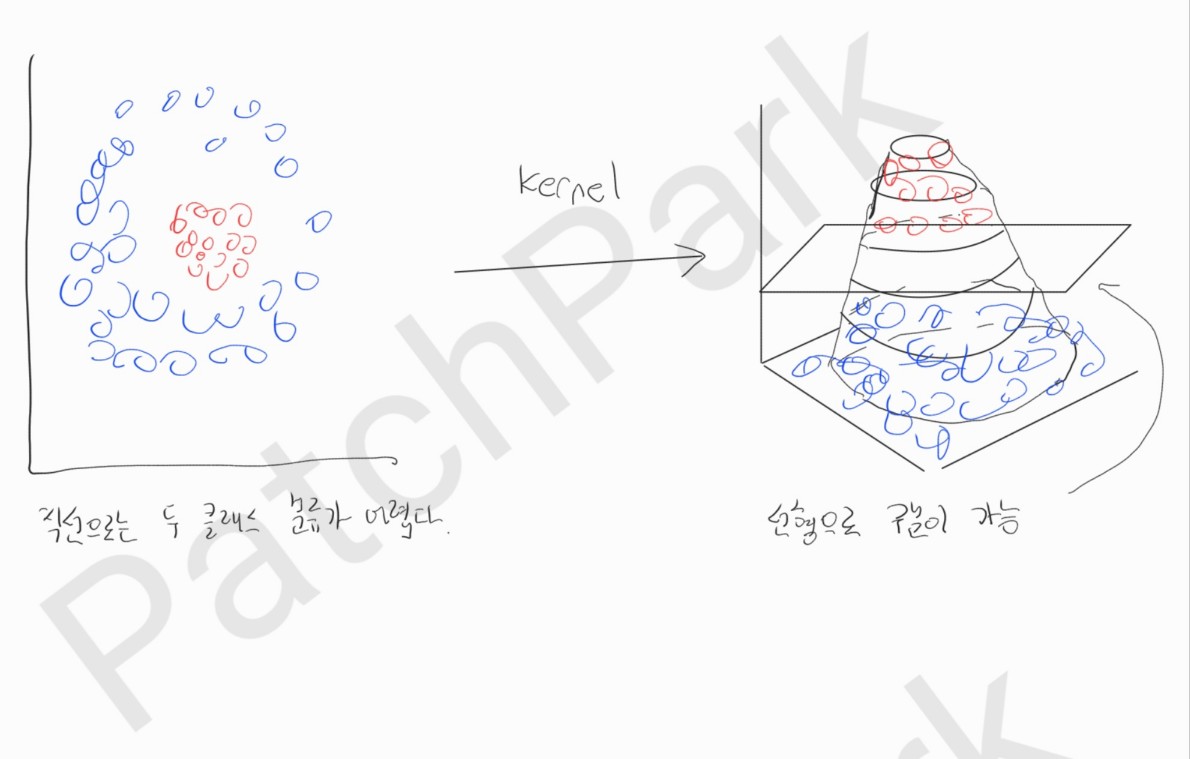 kernel
직선으로는 두 클래스 분류가 어렵다.
선형으로 구분이 가능
PatchPark
rk